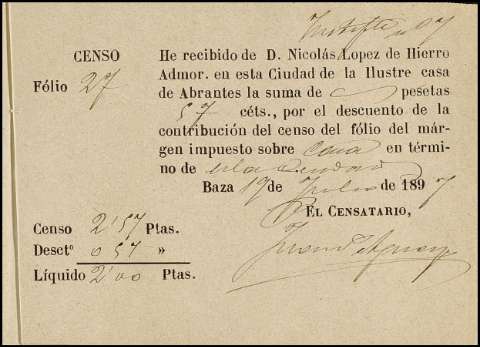 CENSO
Fólio 27
He recibido de D. Nicolás Lopez de Hierro
Admor. en esta Ciudad de la Ilustre casa
de Abrantes la suma de pesetas
57 céts., por el descuento de la
contribución del censo del fólio del már-
gen impuesto sobre Casa en térmi-
no de esta Ciudad
Baza 19 de Julio de 1897
EL CENSATARIO,
Censo 2'57 Ptas.
Desctº 0 57 »
Líquido 2'00 Ptas.
Juan